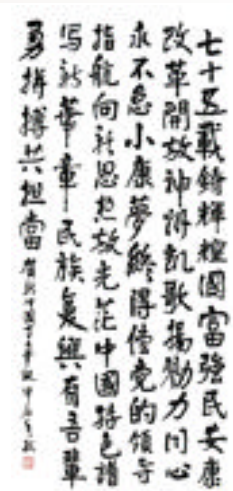 七十五載鑄輝煌國富強民安康
改革開放神州凱歌揚勠力同心
永不息小康夢終得償党的領导
指航向新思想放光芒中國特色譜
写新華章民族复興有吾輩
勇拼搏共担當